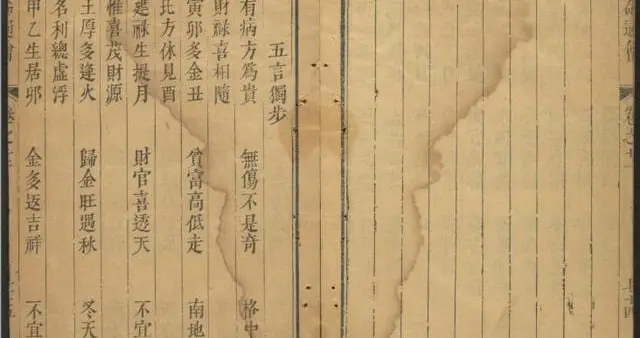 五言獨步
有病方為貴 無傷不是奇 格中
財祿喜相隨
寅卯多金丑 貧富高低走 南地
北方休見酉
建祿生提月 財官喜透天 不宜
惟喜茂財源
土厚多逢火 歸金旺遇秋 冬天
名利總虛浮
甲乙生居卯 金多返吉祥 不宜